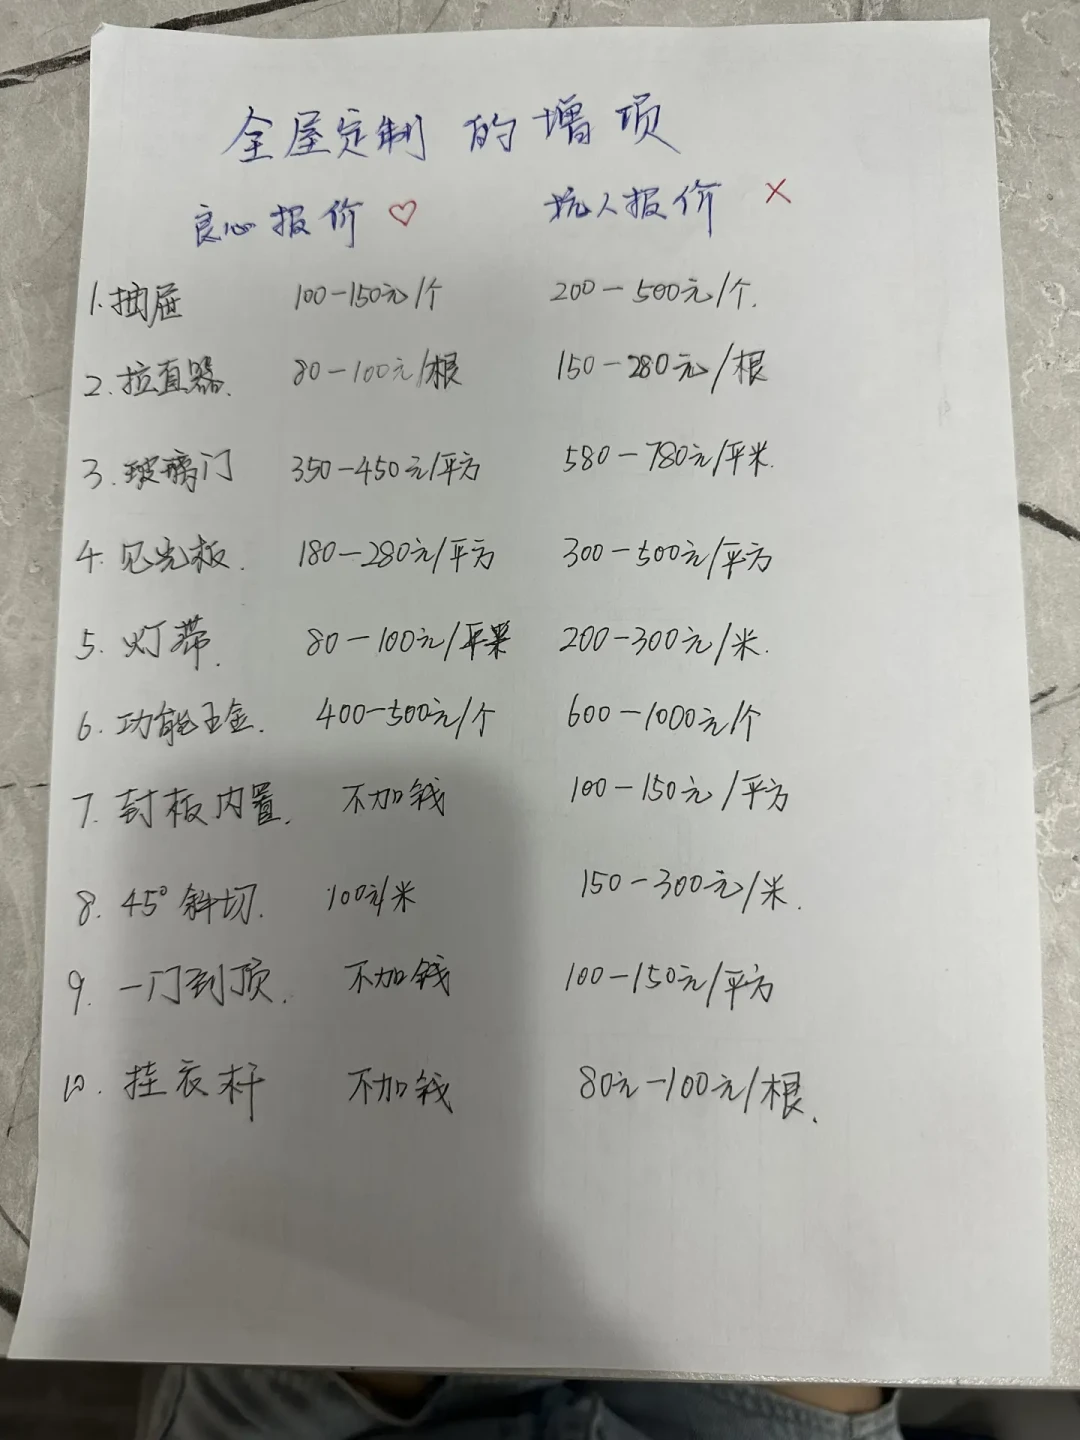 全屋定制的增项
良心报价 ♡ 坑人报价 ×
1.抽屉 100-150元/个 200-500元/个.
2.拉直器. 80-100元/根 150-280元/根
3.玻璃门 350-450元/平方 580-780元/平米.
4.见光板. 180-280元/平方 300-500元/平方
5.灯带. 80-100元/米 200-300元/米.
6.功能五金. 400-500元/个 600-1000元/个
7.封板内置. 不加钱 100-150元/平方
8.45°斜切. 100元/米 150-300元/米.
9.一门到顶. 不加钱 100-150元/平方
10.挂衣杆 不加钱 80元-100元/根.